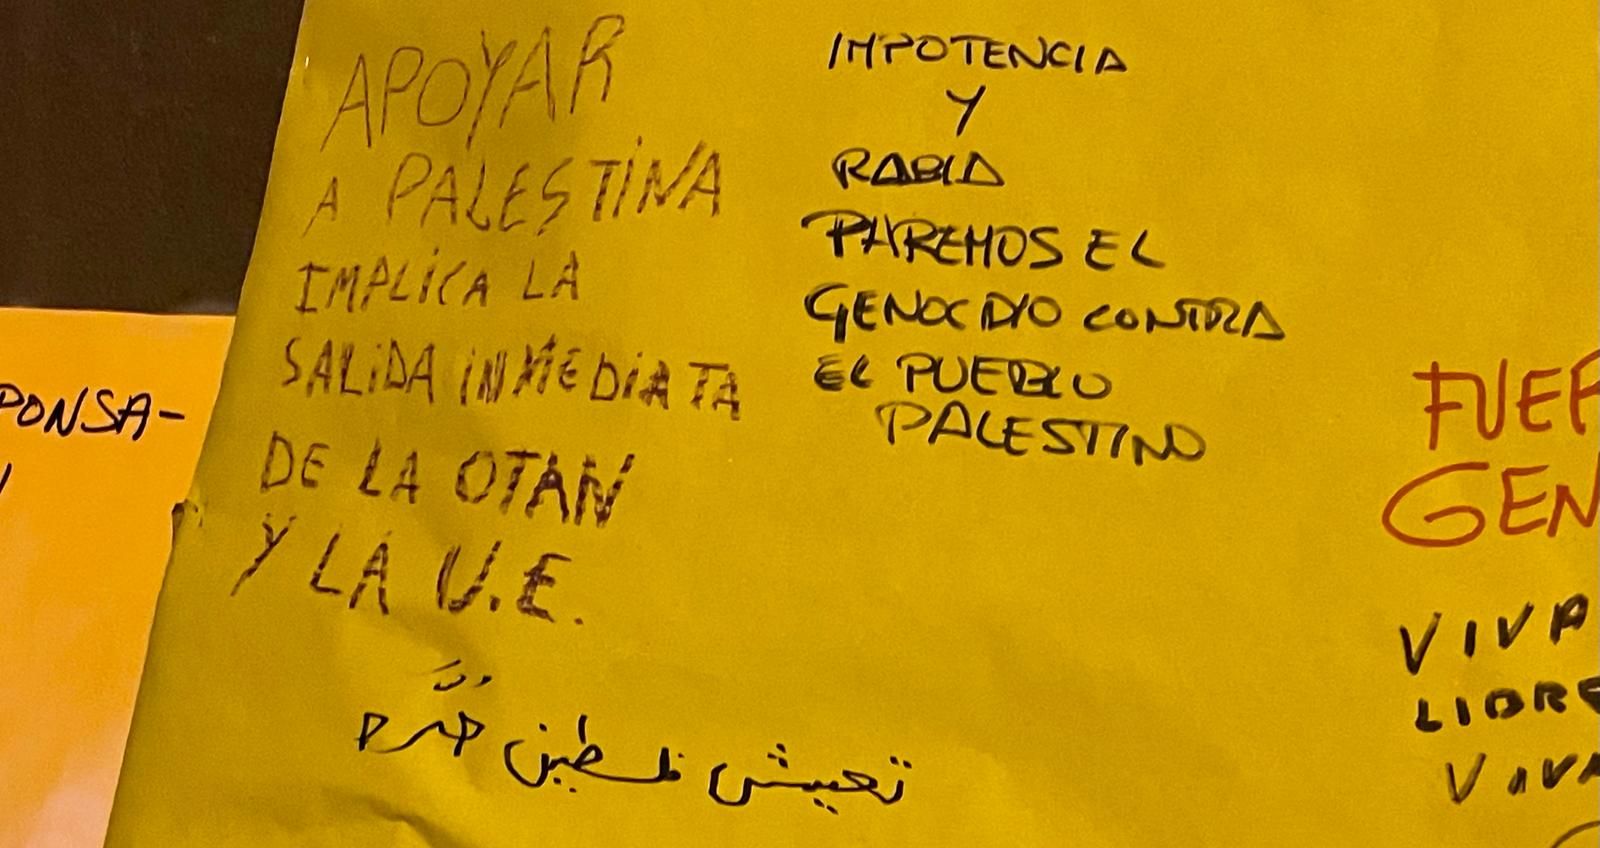 APOYAR
A PALESTINA
IMPLICA LA
SALIDA INMEDIATA
DE LA OTAN
Y LA U.E.
تعيش فلسطين حرة
IMPOTENCIA
Y
RABIA
PAREMOS EL
GENOCIDIO CONTRA
EL PUEBLO
PALESTINO
PONSA-
FUER
GEN
VIVA
LIBRE
VIVA